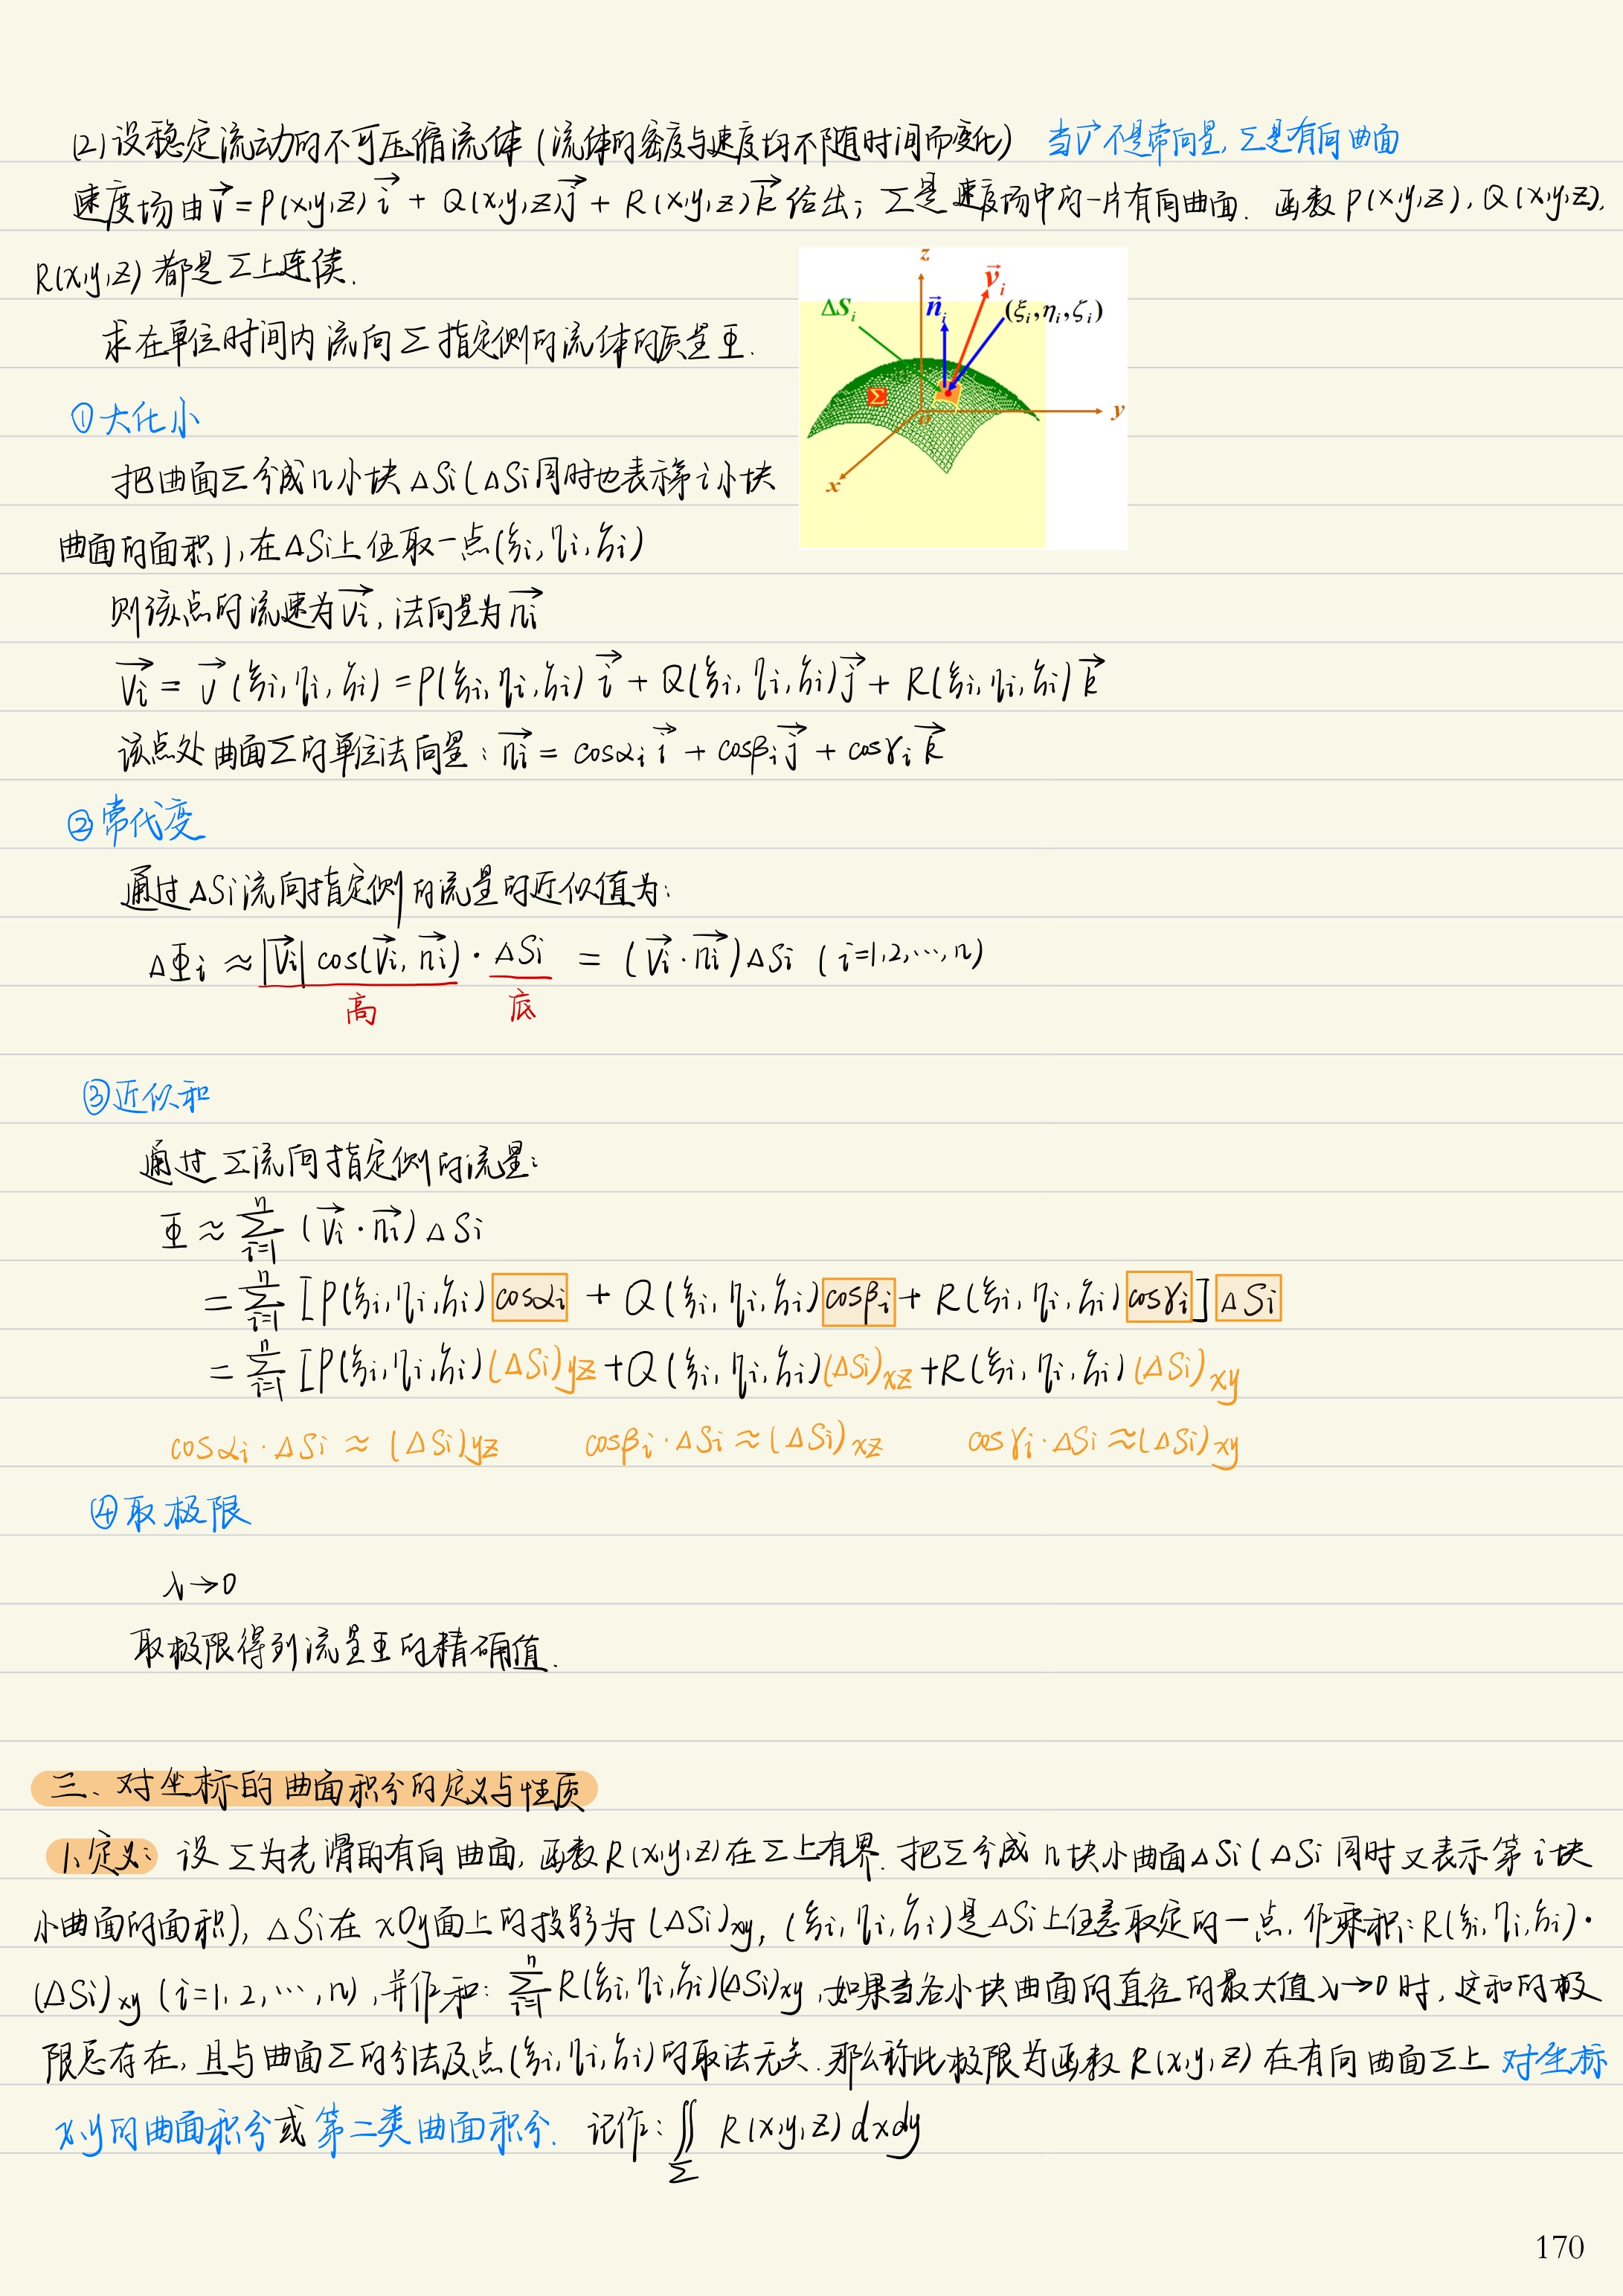 (2)设稳定流动的不可压缩流体(流体的密度与速度均不随时间而变化) 当v⃗不是常向量,Σ是有向曲面
速度场由v⃗=P(x,y,z)i⃗+Q(x,y,z)j⃗+R(x,y,z)k⃗给出;Σ是速度场中的一片有向曲面. 函数P(x,y,z),Q(x,y,z),
R(x,y,z)都是Σ上连续.
求在单位时间内流向Σ指定侧的流体的质量Φ.
z
v⃗i
ΔSi
n⃗i
(ξi,ηi,ζi)
Σ
o
y
x
①大化小
把曲面Σ分成n小块ΔSi(ΔSi同时也表示第i小块
曲面的面积),在ΔSi上任取一点(ξi,ηi,ζi)
则该点的流速为v⃗i,法向量为n⃗i
v⃗i=v⃗(ξi,ηi,ζi)=P(ξi,ηi,ζi)i⃗+Q(ξi,ηi,ζi)j⃗+R(ξi,ηi,ζi)k⃗
该点处曲面Σ的单位法向量:n⃗i=cosαi i⃗+cosβi j⃗+cosγi k⃗
②常代变
通过ΔSi流向指定侧的流量的近似值为:
ΔΦi≈|v⃗i|cos(v⃗i,n⃗i)·ΔSi=(v⃗i·n⃗i)ΔSi (i=1,2,…,n)
高 底
③近似和
通过Σ流向指定侧的流量:
Φ≈∑_{i=1}^{n}(v⃗i·n⃗i)ΔSi
=∑_{i=1}^{n}[P(ξi,ηi,ζi)cosαi+Q(ξi,ηi,ζi)cosβi+R(ξi,ηi,ζi)cosγi]ΔSi
=∑_{i=1}^{n}[P(ξi,ηi,ζi)(ΔSi)yz+Q(ξi,ηi,ζi)(ΔSi)xz+R(ξi,ηi,ζi)(ΔSi)xy
cosαi·ΔSi≈(ΔSi)yz cosβi·ΔSi≈(ΔSi)xz cosγi·ΔSi≈(ΔSi)xy
④取极限
λ→0
取极限得到流量Φ的精确值.
三、对坐标的曲面积分的定义与性质
1.定义: 设Σ为光滑的有向曲面,函数R(x,y,z)在Σ上有界.把Σ分成n块小曲面ΔSi(ΔSi同时又表示第i块
小曲面的面积),ΔSi在xOy面上的投影为(ΔSi)xy,(ξi,ηi,ζi)是ΔSi上任意取定的一点,作乘积:R(ξi,ηi,ζi)·
(ΔSi)xy(i=1,2,…,n),并作和:∑_{i=1}^{n}R(ξi,ηi,ζi)(ΔSi)xy,如果当各小块曲面的直径的最大值λ→0时,这和的极
限总存在,且与曲面Σ的分法及点(ξi,ηi,ζi)的取法无关.那么称此极限为函数R(x,y,z)在有向曲面Σ上对坐标
x,y的曲面积分或第二类曲面积分. 记作:∬_Σ R(x,y,z)dxdy
170